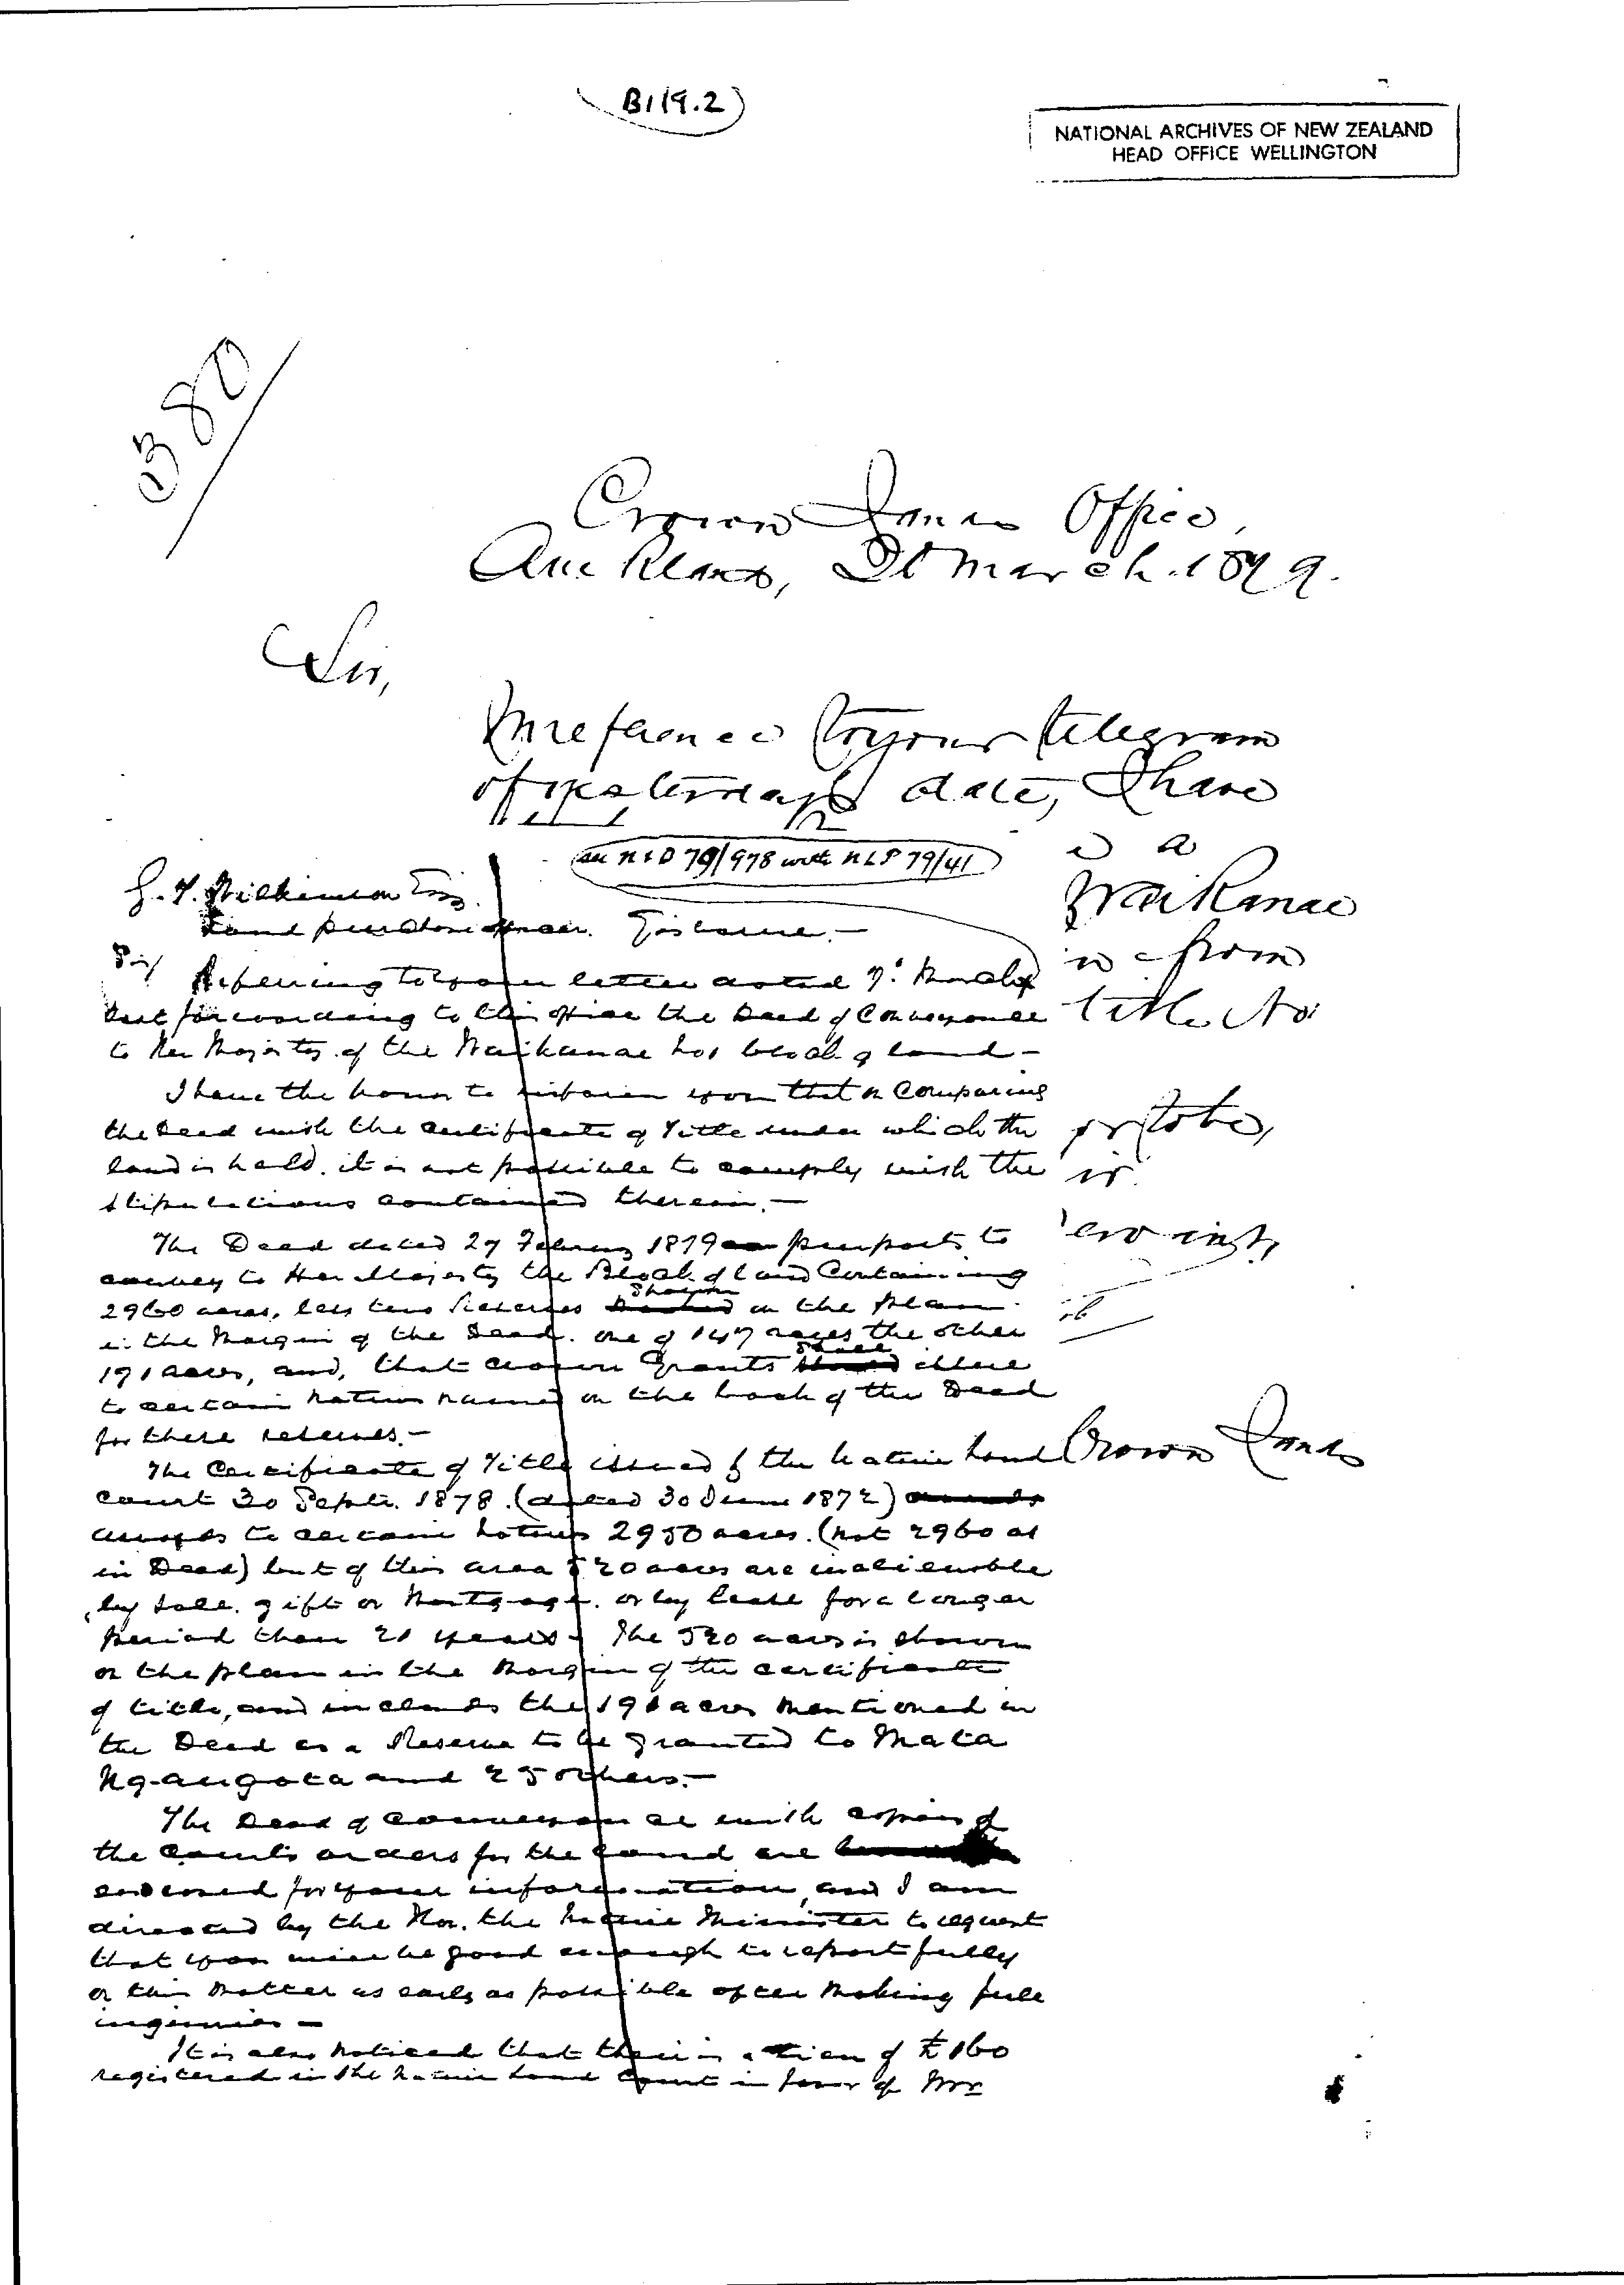 B119.2
NATIONAL ARCHIVES OF NEW ZEALAND
HEAD OFFICE WELLINGTON
380
Crown Lands Office,
Auckland, March. 1879.
Sir,
In reference to your telegram
of yesterday's date, I have
79/978 with NLP 79/41
a
G. T. Wilkinson Esq.
Waikanae
Land Purchase Officer. Gisborne. —
from
Sir/ Referring to your letter dated 7. March
last forwarding to this office the Deed of Conveyance
title No
to Her Majesty of the Waikanae No 1 block of land —
I have the honor to inform you that on Comparing
the Deed with the Certificate of Title under which the
or to be,
land is held. it is not possible to comply with the
is
stipulations contained therein. —
The Deed dated 27 February 1879 purports to
inst,
convey to Her Majesty the Block of land Containing
2960 acres, less two Reserves shown on the plan
in the Margin of the Deed. one of 147 acres the other
191 acres, and, that crown Grants shall issue
to certain natives named on the back of the Deed
for these reserves. —
The Certificate of Title issued by the Native Land
Crown Lands
Court 30 Septr. 1878. (dated 30 June 1872)
awards to certain natives 2950 acres. (not 2960 as
in Deed) but of this area 520 acres are inalienable
by sale. gift or Mortgage. or by lease for a longer
period than 21 years — The 520 acres is shown
on the plan in the Margin of the certificate
of title, and includes the 191 acres mentioned in
the Deed as a Reserve to be granted to Mata
and 25 others. —
The Deed of Conveyance with copies of
the Court's orders for the land are
enclosed for your information, and I am
directed by the Hon. the Native Minister to request
that you will be good enough to report fully
on this matter as early as possible after making full
inquiries —
It is also noticed that there is a lien of £160
registered in the Native Land Court in favor of Mr